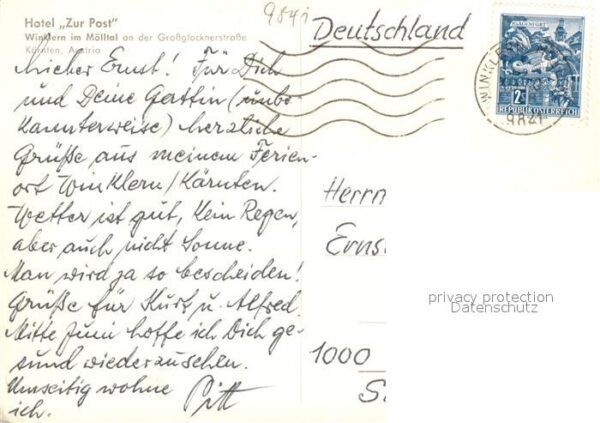 Hotel „Zur Post"
Winklern im Mölltal an der Großglocknerstraße
Kärnten, Austria
984i
Deutschland
Lieber Ernst! Für Dich
und Deine Gattin (unbe-
kannterweise) herzliche
Grüße aus meinem Ferien-
ort Winklern/Kärnten.
Wetter ist gut, kein Regen,
aber auch nicht Sonne.
Man wird ja so bescheiden!
Grüße für Kurt u. Alfred.
Mitte Juni hoffe ich Dich ge-
sund wiederzusehen.
Umseitig wohne Pitt
ich.
KLAGENFURT
2S
REPUBLIK ÖSTERREICH
WINKLERN
9841
Herrn
Ernst
1000
privacy protection
Datenschutz